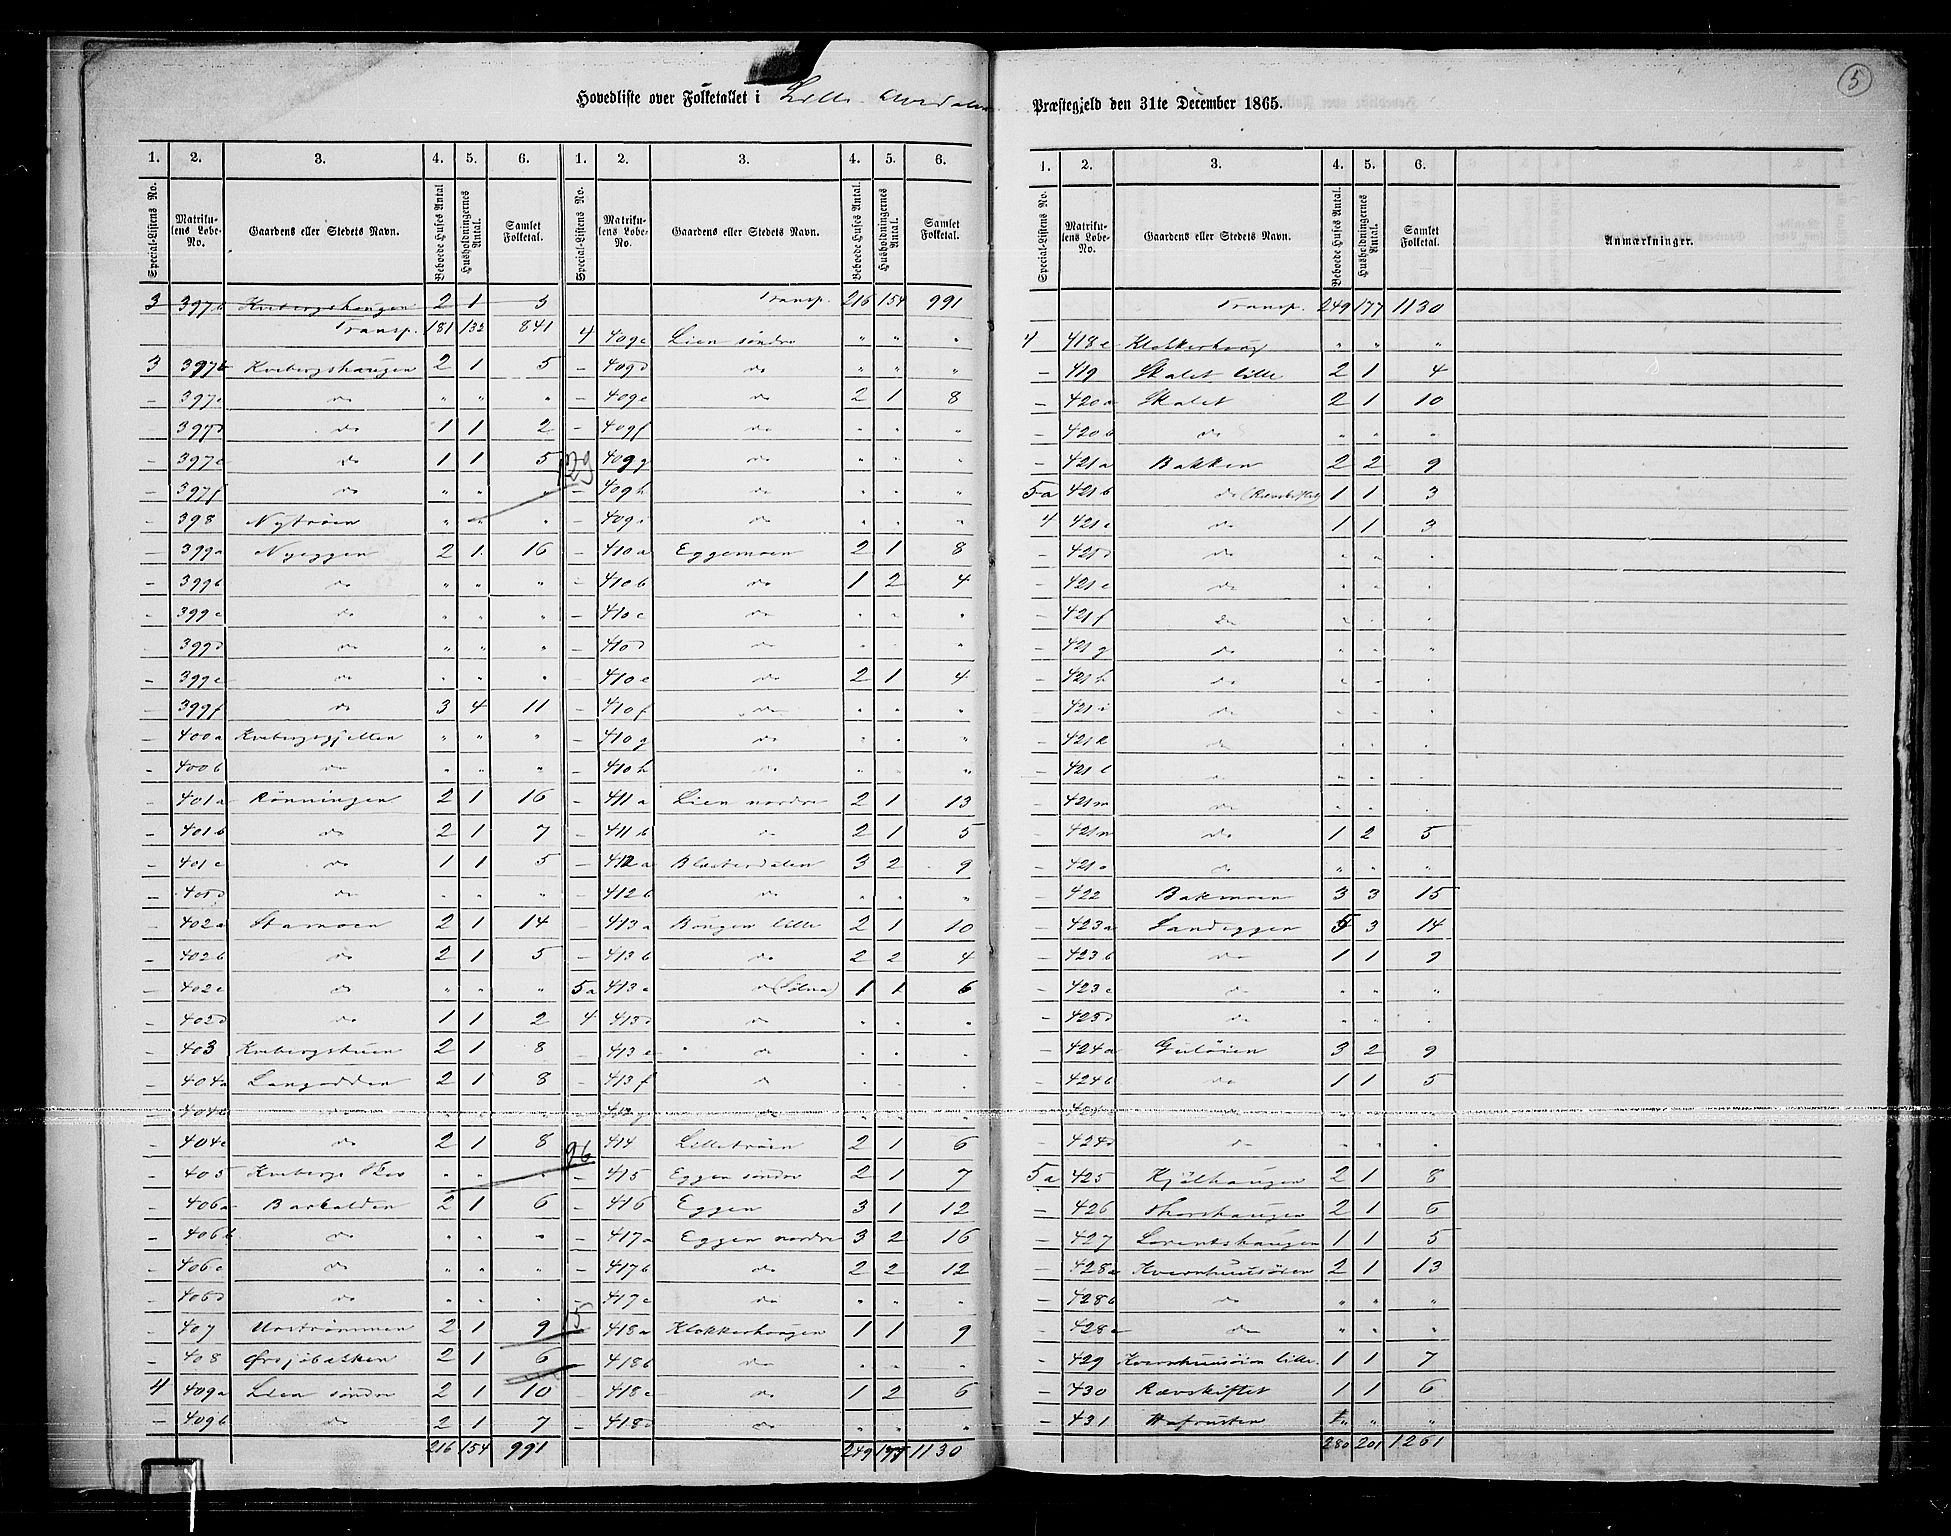 5
Hovedliste over Folketallet i Lille Elvedalen Præstegjeld den 31te December 1865.
1. 2. 3. 4. 5. 6. 1. 2. 3. 4. 5. 6.
Special-Listens No. Matrikulens Løbe-No. Gaardens eller Stedets Navn. Beboede Huses Antal Husholdningernes Antal. Samlet Folketal. Special-Listens No. Matrikulens Løbe-No. Gaardens eller Stedets Navn. Beboede Huses Antal. Husholdningernes Antal. Samlet Folketal.
3 397b Kvebergshaugen 2 1 3
Transp. 181 132 841
3 397b Kvebergshaugen 2 1 5
- 397c do " " "
- 397d do 1 1 2
- 397e do 1 1 5
- 397f do " " "
- 398 Nytrøen " " "
- 399a Nyeggen 2 1 16
- 399b do " " "
- 399c do " " "
- 399d do " " "
- 399e do " " "
- 399f do 3 4 11
- 400a Kvebergsgjelten " " "
- 400b do " " "
- 401a Rønningen 2 1 16
- 401b do 2 1 7
- 401c do 1 1 5
- 401d do " " "
- 402a Stamoen 2 1 14
- 402b do 2 1 5
- 402c do " " "
- 402d do 1 1 2
- 403 Kvebergstuen 2 1 8
- 404a Langodden 2 1 8
- 404b do " " "
- 404c do 2 1 8
- 405 Kvebergs " " "
- 406a Barkalden 2 1 6
- 406b do " " "
- 406c do " " "
- 406d do " " "
- 407 2 1 9
- 408 Ørsjøbakken 2 1 6
4 409a Lien søndre 2 1 10
- 409b do 2 1 7
216 154 991
129
96
15
Transp. 216 154 991
4 409c Lien søndre " " "
- 409d do " " "
- 409e do 2 1 8
- 409f do " " "
- 409g do " " "
- 409h do " " "
- 409i do " " "
- 410a Eggemoen 2 1 8
- 410b do 1 2 4
- 410c do " " "
- 410d do " " "
- 410e do 2 1 4
- 410f do " " "
- 410g do " " "
- 410h do " " "
- 411a Lien nordre 2 1 13
- 411b do 2 1 5
- 412a Blæsterdalen 3 2 9
- 412b do " " "
- 413a Bangen lille 2 1 10
- 413b do 2 2 4
5a 413c do (Sølna) 1 1 6
4 413d do " " "
- 413e do " " "
- 413f do " " "
- 413g do " " "
414 Lilletrøen 2 1 6
- 415 Eggen søndre 2 1 7
- 416 Eggen 3 1 12
- 417a Eggen nordre 3 2 16
- 417b do 2 2 12
- 417c do " " "
418a Klokkerhaugen 1 1 9
- 418b do " " "
- 418c do 1 2 6
- 418d do " " "
249 177 1130
1. 2. 3. 4. 5. 6.
Special-Listens No. Matrikulens Løbe-No. Gaardens eller Stedets Navn. Beboede Huses Antal. Husholdningernes Antal. Samlet Folketal. Anmærkninger.
Transp. 249 177 1130
4 418e Klokkerhaug " " "
- 419 Skalet lille 2 1 4
- 420a Skalet 2 1 10
- 420b do " " "
- 421a Bakken 2 2 9
5a 421b do (Rævskiftet) 1 1 3
4 421c do 1 1 3
- 421d do " " "
- 421e do " " "
- 421f do " " "
- 421g do " " "
- 421h do " " "
- 421i do " " "
- 421k do " " "
- 421l do " " "
- 421m do " " "
- 421n do 1 2 5
- 421o do " " "
- 422 Bakmoen 3 3 15
- 423a Sandeggen 5 3 14
- 423b do 1 1 9
- 423c do " " "
- 423d do " " "
- 424a Guløien 3 2 9
- 424b do 1 1 5
- 424c do " " "
- 424d do " " "
5a 425 Kjølhaugen 2 1 8
- 426 Thorshaugen 2 1 6
- 427 Lorentshaugen 1 1 5
- 428a Kvernhuusøien 2 1 13
- 428b do " " "
- 428c do " " "
- 429 Kvernhuusøien lille. 1 1 7
- 430 Rævskiftet 1 1 6
- 431 " "
280 201 1261